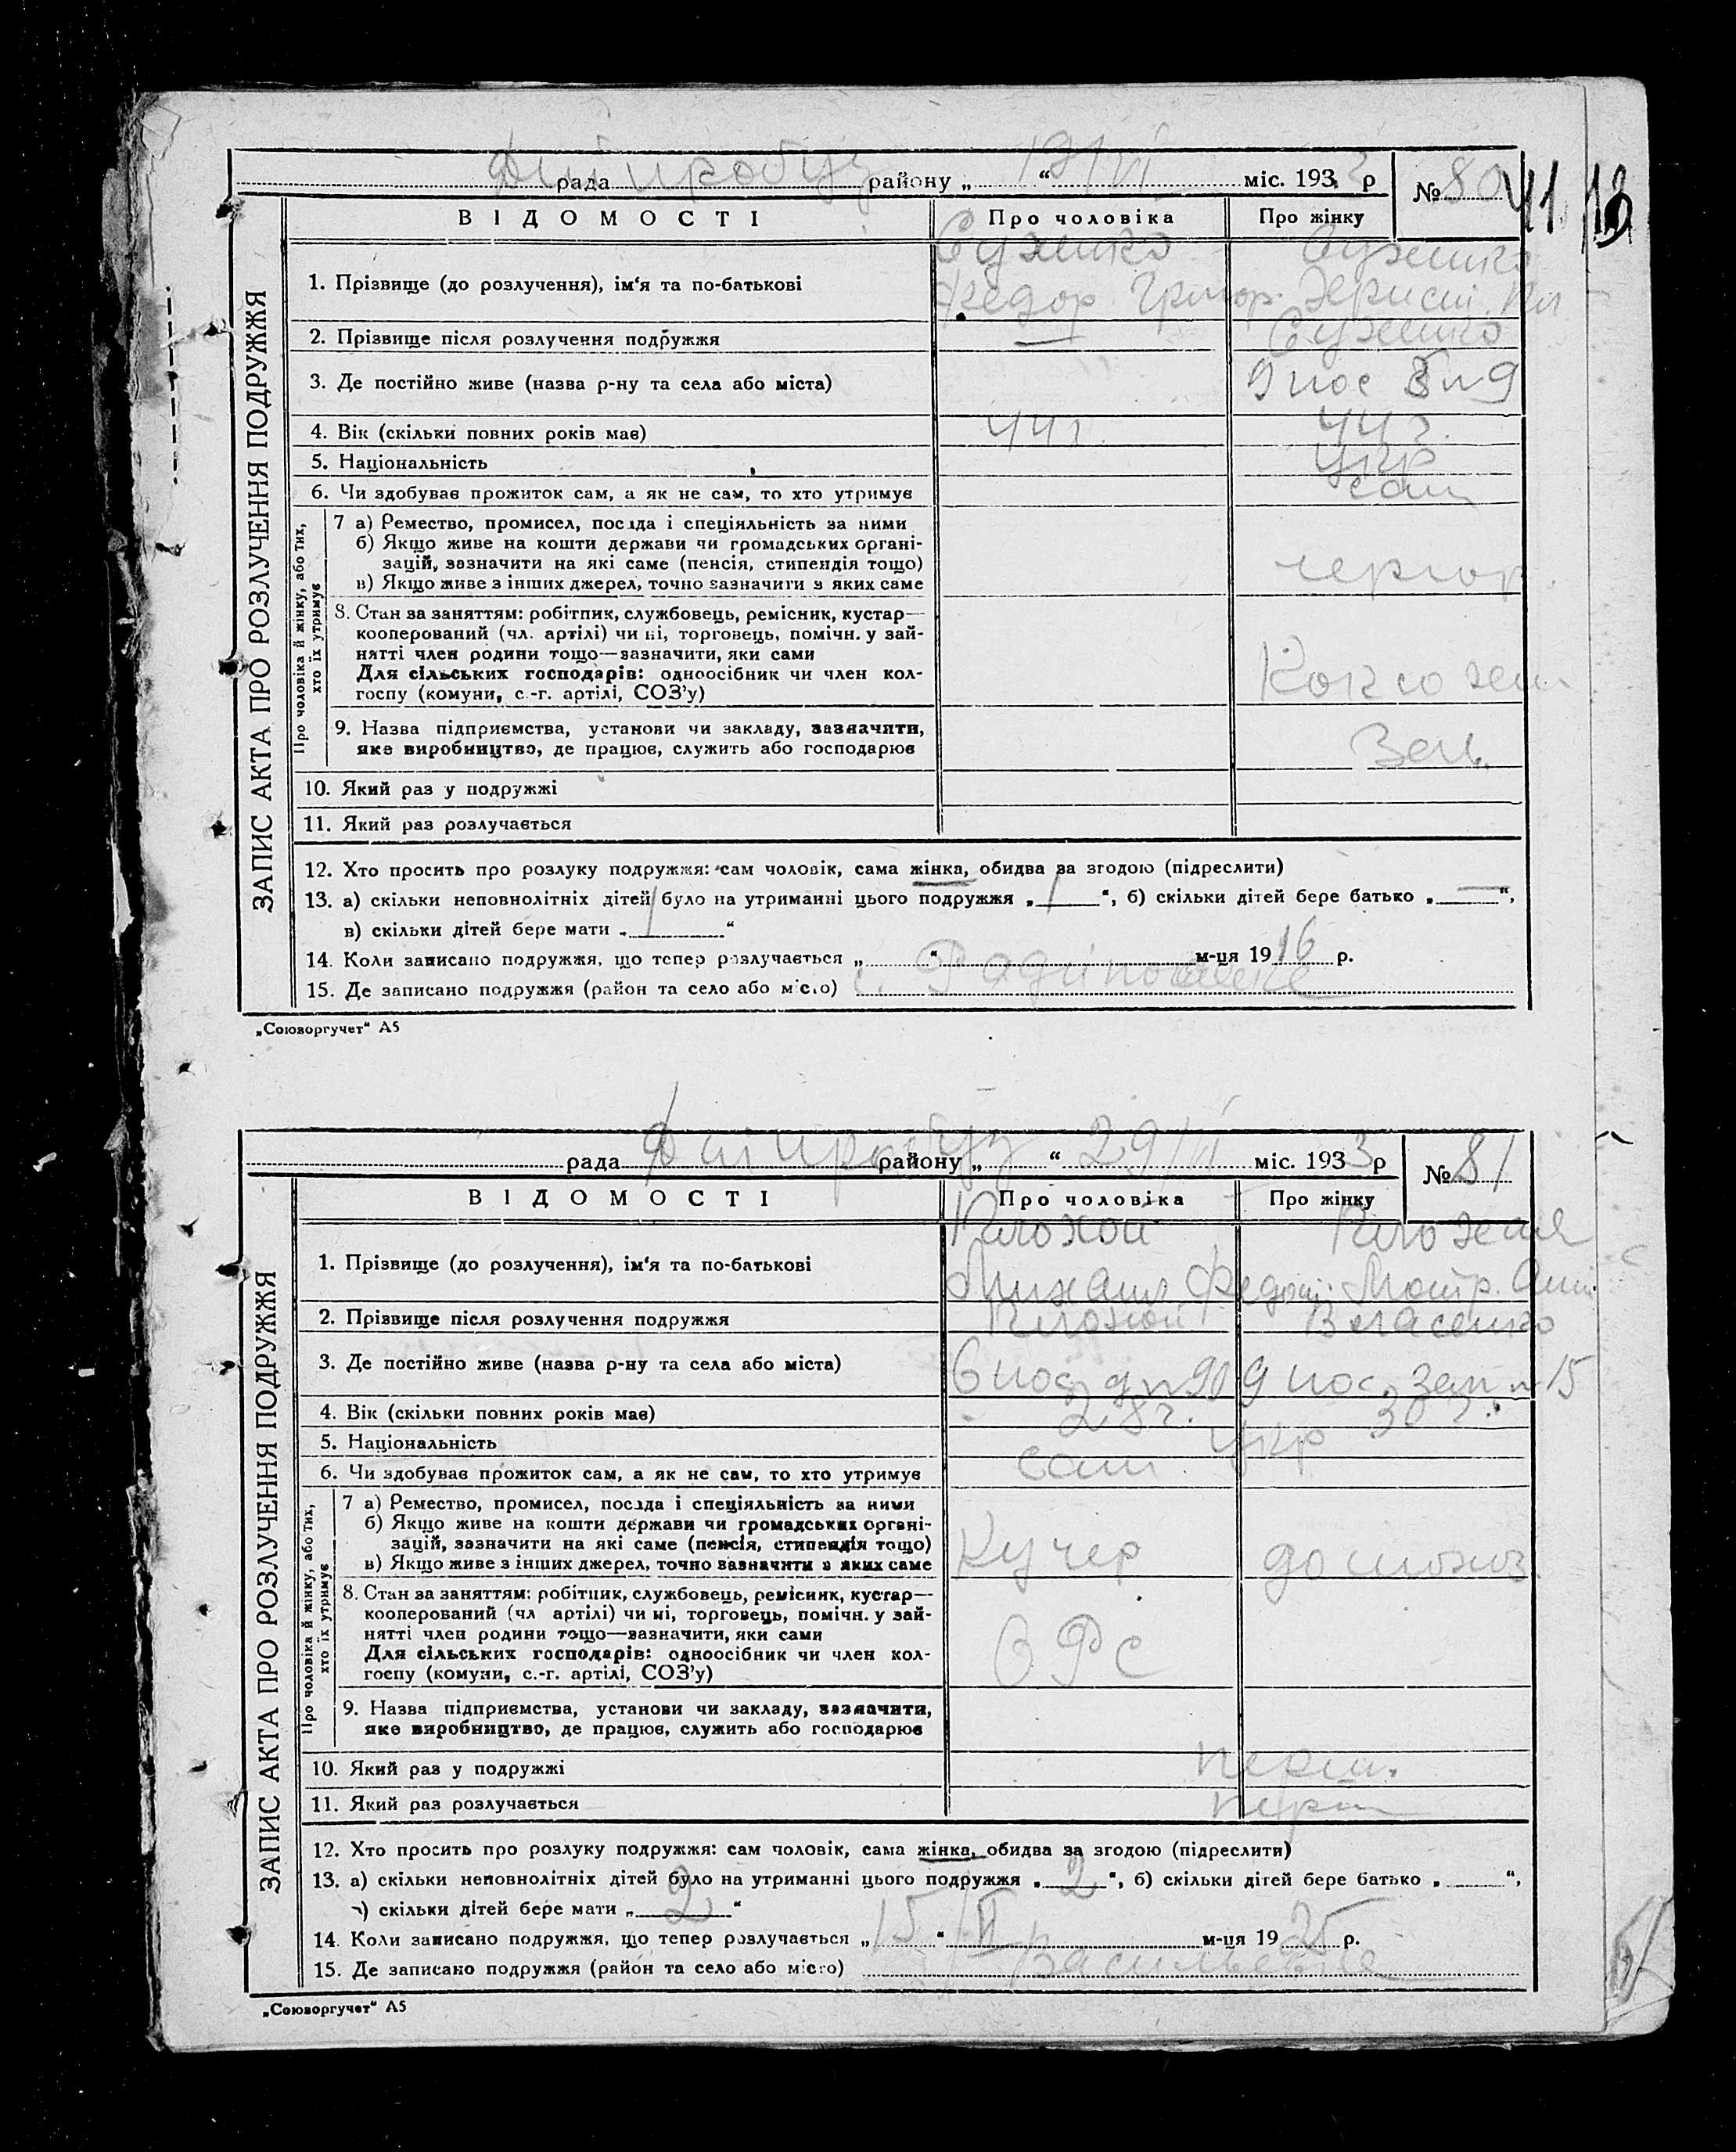 рада району „ “ 19/VI міс. 1933 р № 80
41
ЗАПИС АКТА ПРО РОЗЛУЧЕННЯ ПОДРУЖЖЯ
ВІДОМОСТІ Про чоловіка Про жінку
1. Прізвище (до розлучення), ім'я та по-батькові
Федор Григор.
2. Прізвище після розлучення подружжя —
3. Де постійно живе (назва р-ну та села або міста) 9 пос
4. Вік (скільки повних років має) 44 г. 44 г.
5. Національність укр
6. Чи здобуває прожиток сам, а як не сам, то хто утримує сам
Про чоловіка й жінку, або тих, хто їх утримує
7 а) Ремество, промисел, посада і спеціяльність за ними
б) Якщо живе на кошти держави чи громадських органі-
зацій, зазначити на які саме (пенсія, стипендія тощо)
в) Якщо живе з інших джерел, точно зазначити з яких саме
8. Стан за заняттям: робітник, службовець, ремісник, кустар—
кооперований (чл. артілі) чи ні, торговець, помічн. у зай-
нятті член родини тощо—зазначити, яки сами
Для сільських господарів: одноосібник чи член кол-
госпу (комуни, с.-г. артілі, СОЗ'у)
9. Назва підприємства, установи чи закладу, зазначити,
яке виробництво, де працює, служить або господарює
10. Який раз у подружжі
11. Який раз розлучається
12. Хто просить про розлуку подружжя: сам чоловік, сама жінка, обидва за згодою (підреслити)
13. а) скільки неповнолітніх дітей було на утриманні цього подружжя „ 1 “, б) скільки дітей бере батько „ — “,
в) скільки дітей бере мати „ 1 “
14. Коли записано подружжя, що тепер розлучається „ “ м-ця 1916 р.
15. Де записано подружжя (район та село або місто) с.
„Союзоргучет“ А5
рада району „ “ 29/VI міс. 1933 р № 81
ЗАПИС АКТА ПРО РОЗЛУЧЕННЯ ПОДРУЖЖЯ
ВІДОМОСТІ Про чоловіка Про жінку
Плохой Плохая
1. Прізвище (до розлучення), ім'я та по-батькові
Михаил Федот. Мотр.
2. Прізвище після розлучення подружжя Плохой Власенко
3. Де постійно живе (назва р-ну та села або міста) 6 пос 9 пос. 15
4. Вік (скільки повних років має) 28 г. 30 г.
5. Національність укр
6. Чи здобуває прожиток сам, а як не сам, то хто утримує сам
Про чоловіка й жінку, або тих, хто їх утримує
7 а) Ремество, промисел, посада і спеціяльність за ними
б) Якщо живе на кошти держави чи громадських органі-
зацій, зазначити на які саме (пенсія, стипендія тощо)
в) Якщо живе з інших джерел, точно зазначити з яких саме
Кучер домохоз
8. Стан за заняттям: робітник, службовець, ремісник, кустар—
кооперований (чл артілі) чи ні, торговець, помічн. у зай-
нятті член родини тощо—зазначити, яки сами
Для сільських господарів: одноосібник чи член кол-
госпу (комуни, с.-г. артілі, СОЗ'у)
9. Назва підприємства, установи чи закладу, зазначити,
яке виробництво, де працює, служить або господарює
10. Який раз у подружжі перш.
11. Який раз розлучається перш
12. Хто просить про розлуку подружжя: сам чоловік, сама жінка, обидва за згодою (підреслити)
13. а) скільки неповнолітніх дітей було на утриманні цього подружжя „ 2 “, б) скільки дітей бере батько „ “,
в) скільки дітей бере мати „ 2 “
14. Коли записано подружжя, що тепер розлучається „ 15 “ м-ця 1925 р.
15. Де записано подружжя (район та село або місто)
„Союзоргучет“ А5